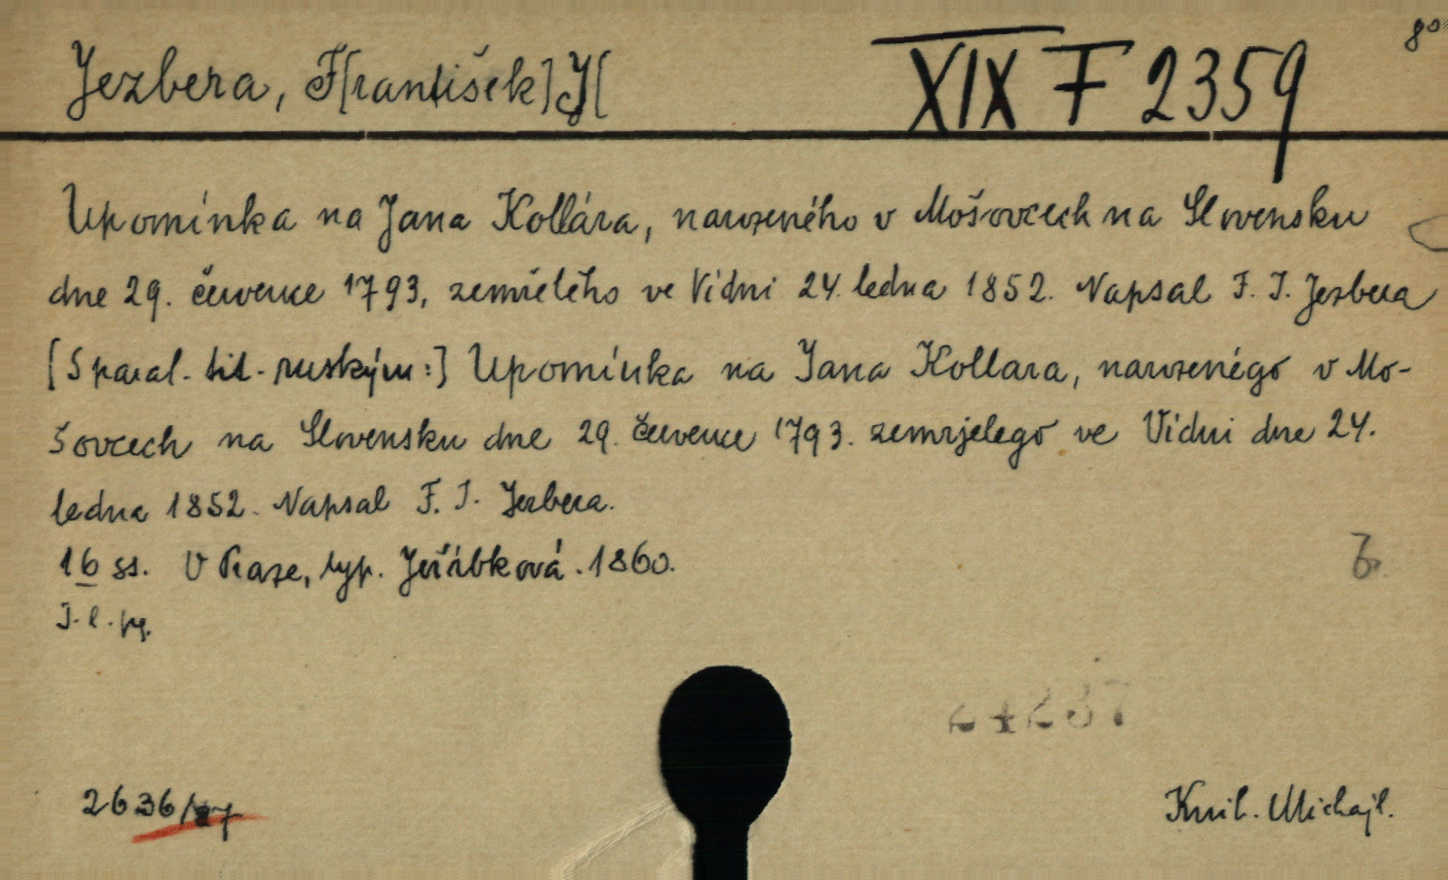 Jezbera, F[rantišek] J[
XIX F 2359
8°
Upomínka na Jana Kollára, narozeného v Mošovcech na Slovensku
dne 29. července 1793, zemřelého ve Vídni 24. ledna 1852. Napsal F. J. Jezbera
[S paral. tit. ruským:] Upomínka na Jana Kollara, narozenégo v Mo-
šovcech na Slovensku dne 29. července 1793. zemrjelego ve Vídni dne 24.
ledna 1852. Napsal F. J. Jezbera.
16 ss. V Praze, typ. Jeřábková. 1860.
24237
2636/
Knih. Michajl.